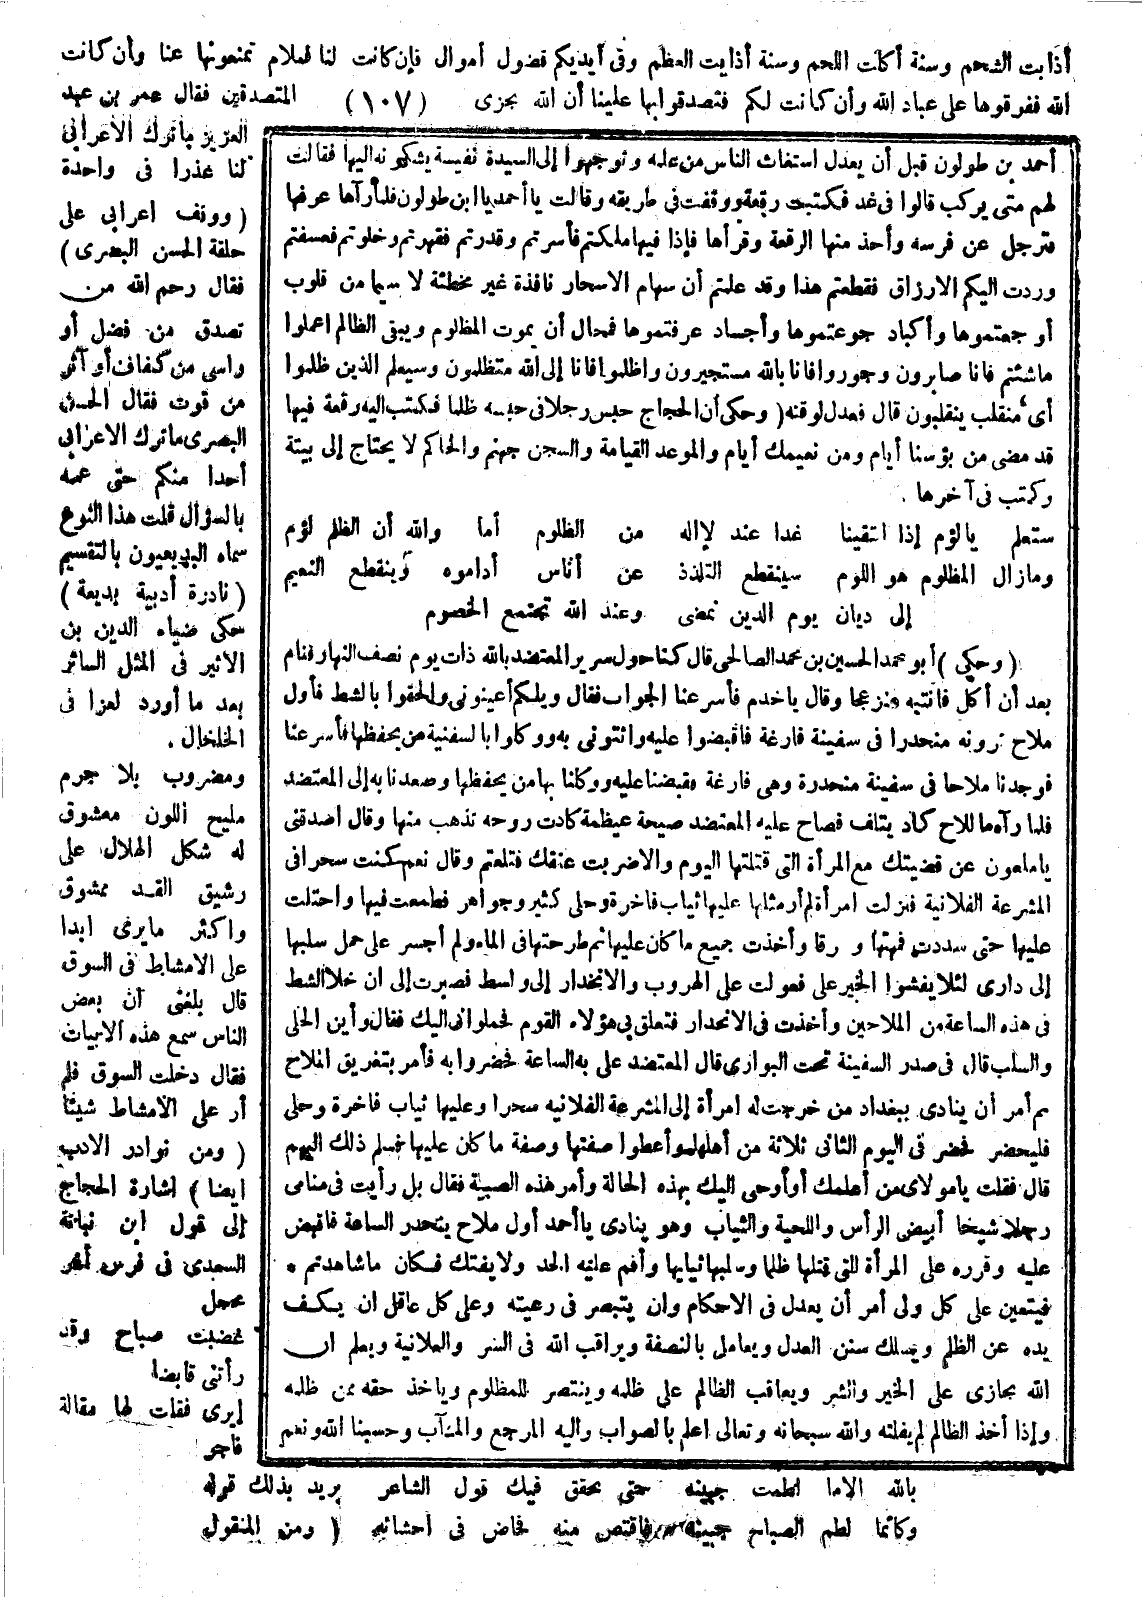 أذابت الشحم وسنة أكلت اللحم وسنة أذابت العظم وفي أيديكم فضول أموال فإن كانت لنا فعلام تمنعونها عنا وأن كانت
الله ففرقوها على عباد الله وأن كانت لكم فتصدقوا بها علينا أن الله يجزى (١٠٧) المتصدقين فقال عمر بن عبد
أحمد بن طولون قبل أن يعدل استغاث الناس من ظلمه وتوجهوا إلى السيدة نفيسة يشكونه اليها فقالت
لهم متى يركب قالوا في غد فكتبت رقعة ووقفت في طريقه وقالت يا أحمد يا ابن طولون فلما رآها عرفها
فترجل عن فرسه وأخذ منها الرقعة وقرأها فإذا فيها ملكتم فأسرتم وقدرتم فقهرتم وخلوتم فعسفتم
وردت اليكم الارزاق فقطعتم هذا وقد علمتم أن سهام الاسحار نافذة غير مخطئة لا سيما من قلوب
أوجعتموها وأكباد جوعتموها وأجساد عرفتموها فمحال أن يموت المظلوم ويبقى الظالم اعملوا
ماشئتم فانا صابرون وجوروا فانا بالله مستجيرون واظلموا فانا إلى الله متظلمون وسيعلم الذين ظلموا
أى منقلب ينقلبون قال فعدل لوقته ( وحكى أن الحجاج حبس رجلا في حبسه ظلما فكتب اليه رقعة فيها
قد مضى من بؤسنا أيام ومن نعيمك أيام والموعد القيامة والسجن جهنم والحاكم لا يحتاج إلى بينة
وكتب في آخرها .
ستعلم يالؤم إذا التقينا غدا عند لإاله من الظلوم أما والله أن الظلم لؤم
ومازال المظلوم هو اللوم سينقطع التلذذ عن أناس أداموه وينقطع النعيم
إلى ديان يوم الدين نمضى وعند الله تجتمع الخصوم
( وحكى ) أبو محمد الحسين بن محمد الصالحى قال كنا حول سرير المعتضد بالله ذات يوم نصف النهار فنام
بعد أن أكل فانتبه منزعجا وقال ياخدم فأسرعنا الجواب فقال ويلكم أعينونى والحقوا بالشط فأول
ملاح ترونه منحدرا في سفينة فارغة فاقبضوا عليه وائتونى به ووكلوا بالسفنية من يحفظها فأسرعنا
فوجدنا ملاحا في سفينة منحدرة وهى فارغة فقبضنا عليه ووكلنا بها من يحفظها وصعدنا به إلى المعتضد
فلما رآه الملاح كاد يتلف فصاح عليه المعتضد صيحة عيظمة كادت روحه تذهب منها وقال اصدقنى
ياملعون عن قضيتك مع المرأة التى قتلتها اليوم والا ضربت عنقك فتلعثم وقال نعم كنت سحرا فى
المشرعة الفلانية فنزلت امرأة لم أر مثلها عليها ثياب فاخرة وحلى كثير وجواهر فطمعت فيها واحتلت
عليها حتى سددت فمها و رقا وأخذت جميع ما كان عليها ثم طرحتها في الماء ولم أجسر على حمل سلبها
إلى دارى لئلا يفشوا الخبر على فعولت على الهروب والانحدار إلى واسط فصبرت إلى ان خلا الشط
في هذه الساعة من الملاحين وأخذت في الانحدار فتعلق بى هؤلاء القوم فحملوانى اليك فقال وأين الحلى
والسلب قال في صدر السفينة تحت البوارى قال المعتضد على به الساعة فحضروا به فأمر بتغريق الملاح
ثم أمر أن ينادى ببغداد من خرجت له امرأة إلى المشرعة الفلانيه سحرا وعليها ثياب فاخرة وحلى
فليحضر فحضر في اليوم الثانى ثلاثة من أهلها وأعطوا صفتها وصفة ما كان عليها فسلم ذلك اليهم
قال فقلت يامولاى من أعلمك أو أوحى اليك بهذه الحالة وأمر هذه الصبية فقال بل رأيت في منامى
رجلا شيخا أبيض الرأس واللحية والثياب وهو ينادى يا أحمد أول ملاح ينحدر الساعة فاقبض
عليه وقرره على المرأة التى قتلها ظلما وسلبها ثيابها وأقم عليه الحد ولا يفتك فكان ماشاهدتم *
فيتعين على كل ولى أمر أن يعدل في الاحكام وان يتبصر في رعيته وعلى كل عاقل ان يكف
يده عن الظلم ويسلك سنن العدل ويعامل بالنصفة ويراقب الله في السر والعلانية ويعلم ان
الله يجازى على الخير والشر ويعاقب الظالم على ظلمه وينتصر للمظلوم وياخذ حقه ممن ظلمه
وإذا أخذ الظالم لم يفلته والله سبحانه وتعالى اعلم بالصواب واليه المرجع والمآب وحسبنا الله ونعم
العزيز ماترك الأعرابى
لنا عذرا في واحدة
( ووقف اعرابى على
حلقة الحسن البصرى )
فقال رحم الله من
تصدق من فضل أو
واسى من كفاف أو آثر
من قوت فقال الحسن
البصرى ماترك الاعرابى
أحدا منكم حتى عمه
بالسؤال قلت هذا النوع
سماه البديعيون بالتقسيم
( نادرة أدبية بديعة )
حكى ضياء الدين بن
الاثير في المثل السائر
بعد ما أورد لغزا في
الخلخال .
ومضروب بلا جرم
مليح اللون معشوق
له شكل الهلال على
رشيق القد ممشوق
واكثر مايرى ابدا
على الامشاط في السوق
قال بلغنى أن بعض
الناس سمع هذه الابيات
فقال دخلت السوق فلم
أر على الامشاط شيئا
( ومن نوادر الادب
ايضا ) اشارة الحجاج
إلى قول ابن نباتة
السعدى في فرس أغر
محجل
غضبت صباح وقد
رأتنى قابضا
إيرى فقلت لها مقالة
فاجر
بالله الاما لطمت جبينه حتى يحقق فيك قول الشاعر يريد بذلك قوله
وكانما لطم الصباح جبينه فاقتص منه فخاض في احشائه ( ومن المنقول